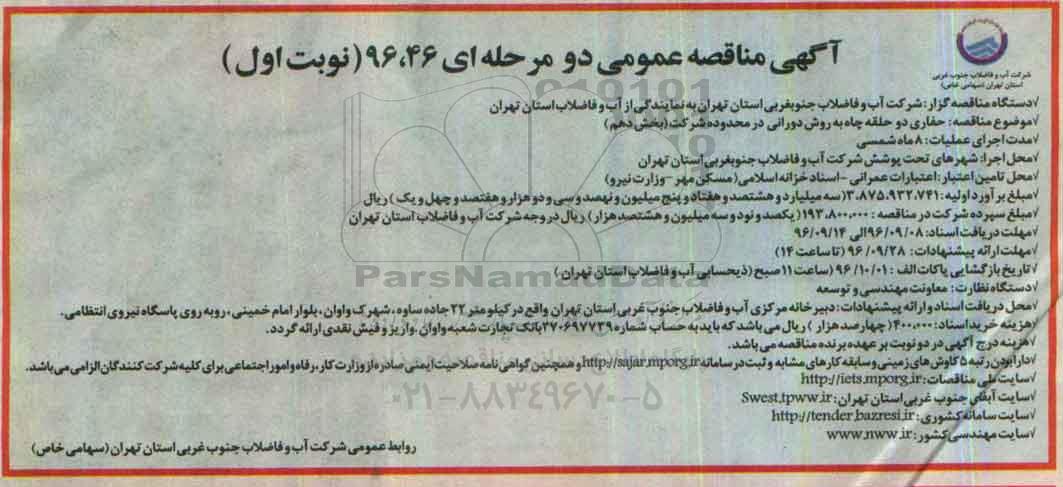 آگهی مناقصه عمومی دو مرحله ای ۹۶،۴۶ (نوبت اول)
شرکت آب و فاضلاب جنوب غربی
استان تهران (سهامی خاص)
√دستگاه مناقصه گزار: شرکت آب و فاضلاب جنوبغربی استان تهران به نمایندگی از آب و فاضلاب استان تهران
√موضوع مناقصه: حفاری دو حلقه چاه به روش دورانی در محدوده شرکت (بخش دهم)
√مدت اجرای عملیات: ۸ ماه شمسی
√محل اجرا: شهرهای تحت پوشش شرکت آب و فاضلاب جنوبغربی استان تهران
√محل تامین اعتبار: اعتبارات عمرانی - اسناد خزانه اسلامی (مسکن مهر - وزارت نیرو)
√مبلغ برآورد اولیه: ۳،۸۷۵،۹۳۲،۷۴۱ (سه میلیارد و هشتصد و هفتاد و پنج میلیون و نهصد و سی و دو هزار و هفتصد و چهل و یک) ریال
√مبلغ سپرده شرکت در مناقصه: ۱۹۳،۸۰۰،۰۰۰ (یکصد و نود و سه میلیون و هشتصد هزار) ریال در وجه شرکت آب و فاضلاب استان تهران
√مهلت دریافت اسناد: ۹۶/۰۹/۰۸ الی ۹۶/۰۹/۱۴
√مهلت ارائه پیشنهادات: ۹۶/۰۹/۲۸ (تا ساعت ۱۴)
√تاریخ بازگشایی پاکات الف: ۹۶/۱۰/۰۱ (ساعت ۱۱ صبح (ذیحسابی آب و فاضلاب استان تهران)
√دستگاه نظارت: معاونت مهندسی و توسعه
√محل دریافت اسناد و ارائه پیشنهادات: دبیرخانه مرکزی آب و فاضلاب جنوب غربی استان تهران واقع در کیلومتر ۲۲ جاده ساوه، شهرک واوان، بلوار امام خمینی، روبه روی پاسگاه نیروی انتظامی.
(هزینه خرید اسناد: ۴۰۰،۰۰۰ (چهارصد هزار) ریال می باشد که باید به حساب شماره ۲۷۰۶۹۷۷۳۹ بانک تجارت شعبه واوان، واریز و فیش نقدی ارائه گردد.
√هزینه درج آگهی در دو نوبت بر عهده برنده مناقصه می باشد.
√دارا بودن رتبه ۵ کاوش های زمینی و سابقه کار های مشابه و ثبت در سامانه http://sajar.mporg.ir و همچنین گواهی نامه صلاحیت ایمنی صادره از وزارت کار، رفاه و امور اجتماعی برای کلیه شرکت کنندگان الزامی می باشد.
√سایت ملی مناقصات: http://iets.mporg.ir
√سایت آبفای جنوب غربی استان تهران: Swest.tpww.ir
√سایت سامانه کشوری: http://tender.bazresi.ir
√سایت مهندسی کشور: www.nww.ir
روابط عمومی شرکت آب و فاضلاب جنوب غربی استان تهران (سهامی خاص)
ParsNamadData
۰۲۱-۸۸۳۴۹۶۷۰-۵